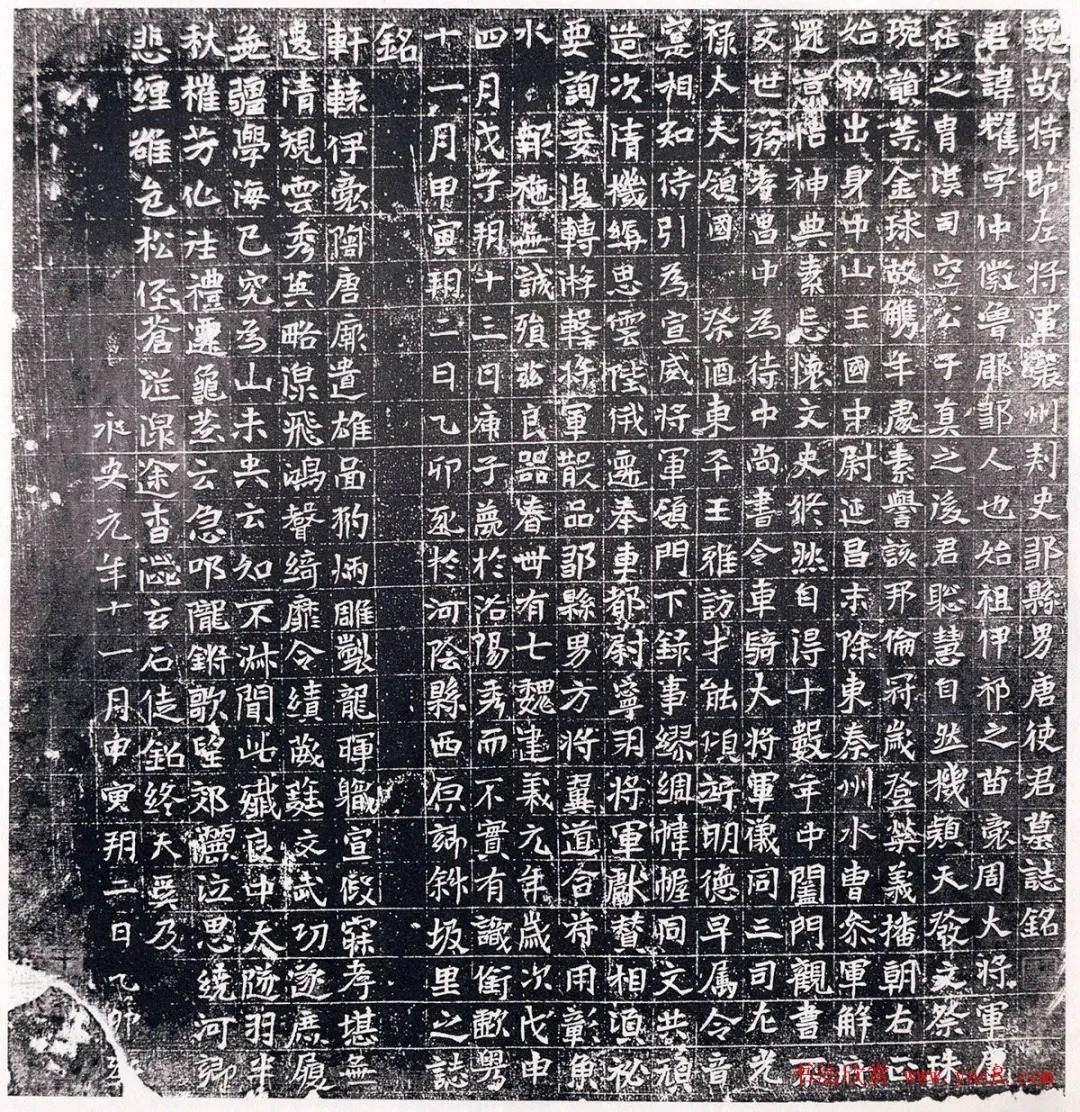 魏故持節左將軍襄州刾史鄒縣男唐使君墓誌銘
君諱耀字仲徽魯郡鄒人也始祖伊祁之苗裔周大將軍
之胄漢司空公子真之後君聦慧自然機穎天發文祭珠
琬韻茶金球故觹年處素譽該邦倫冠歲登榮義播朝右正
始初出身中山王國中尉延昌末除東秦州水曹叅軍解
還悟神典素忘懷文史然自得十數年中闔門觀書而
交世務孝昌中為待中尚書令車騎大將軍儀同三司左光
祿大夫領國祭酒東平王雅訪才能傾訪明德早属令音
寔相知待引為宣威將軍領門下録事繆綢幃幄同文共頏
造次清機緝思雲陛俄遷奉車都尉寧羽將軍獻替相湏礿
要詢委湯轉游擊將軍散品鄒縣男方將翼道合苻用彰魚
水報祐無誠殞兹良器春世有七魏建義元年歲次戊申
四月戊子朔十三日庚子薨於洛陽秀而不實有識銜歔粤
十一月甲寅朔二日乙卯於河陰縣西原斜坂里之誌
銘
軒轅伊裔陶唐廓遺雄啚豹炳雕製龍暉軄宣假寐孝堪無
邊清規雲秀英略深飛鴻聲綺靡令績葳蕤文武功遂庶履
無疆學海已究為山未央云知不淋間此殲良中夭隧羽半
秋摧芳化注禮遷龜蓍云急叩隴鏘歌望郊灑泣思繞河卿
悲纏雒邑松俓蒼深途杳邈玄石徒銘終天奚乃
永安元年十一月甲寅朔二日乙卯